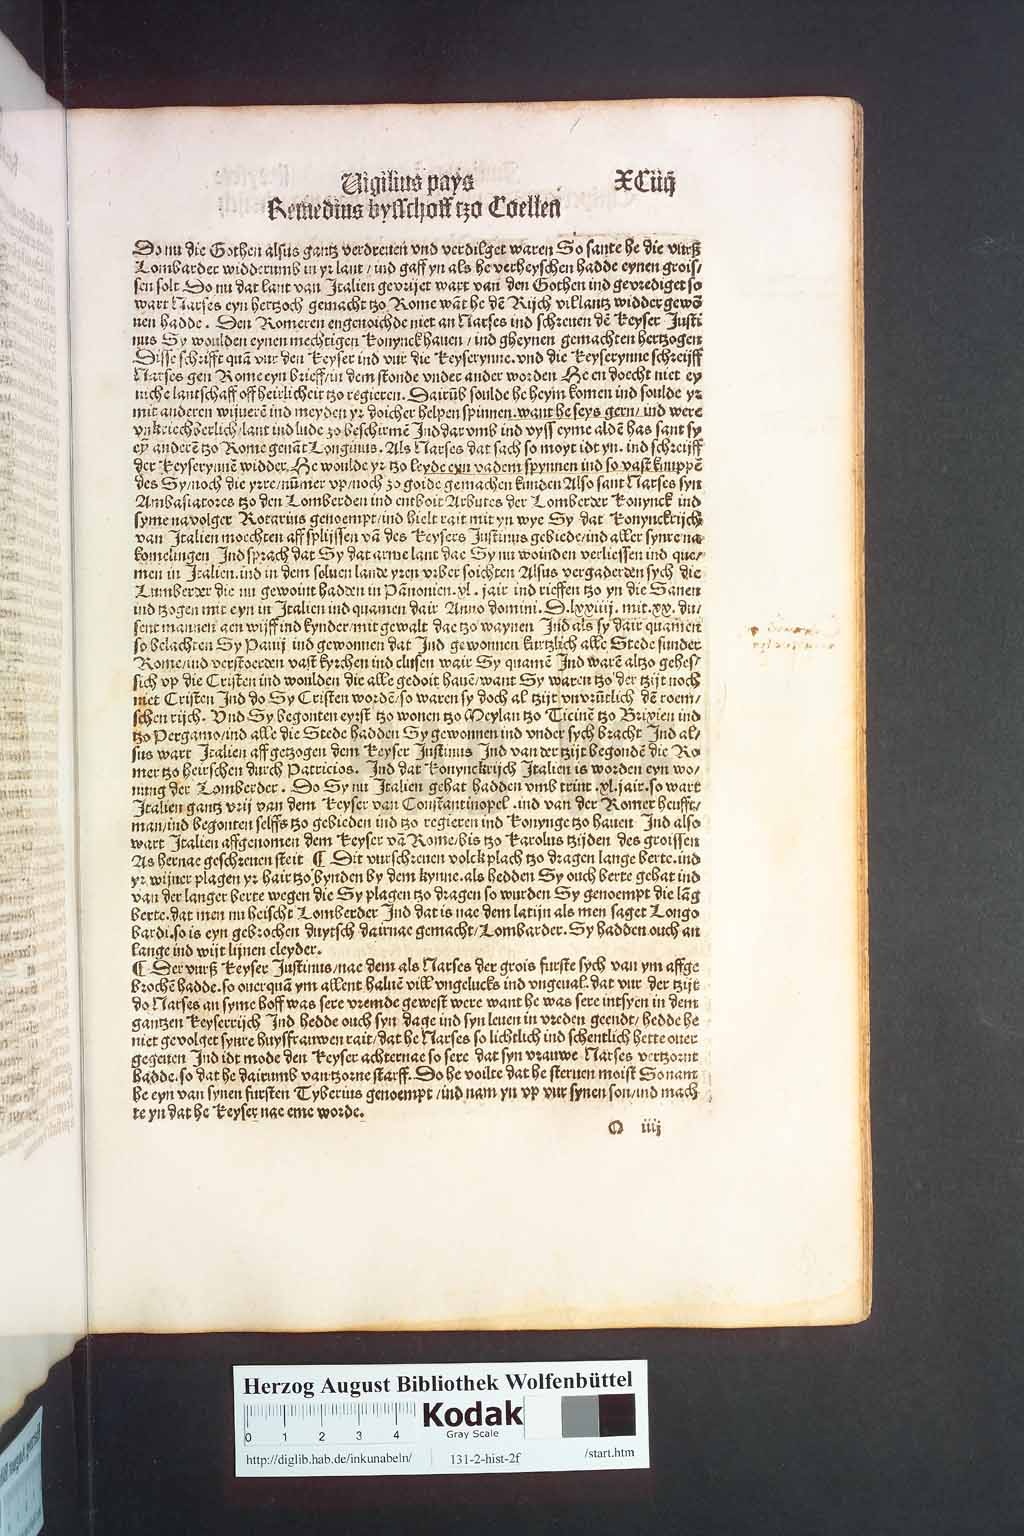 Vigilius pays XCiiij
Remedius bysschoff tzo Coellen
Do nu die Gothen alsus gantz verdreuen vnd verdilget waren So sante he die vurß
Lombarder widderumb in yr lant / ind gaff yn als he verheyschen hadde eynen grois/
sen solt Do nu dat lant van Italien gevrijet wart van den Gothen ind gevrediget so
wart Narses eyn hertzoch gemacht tzo Rome wāt he dē Rijch villantz widder gewō
nen hadde. Den Romeren engenoichde niet an Narses ind schreuen dē keyser Justi
nus Sy woulden eynen mechtigen konynck hauen / ind gheynen gemachten hertzogen
Disse schrifft quā vur den keyser ind vur die keyserynne. vnd die keyserynne schreiff
Narses gen Rome eyn brieff / in dem stonde vnder ander worden He en doecht niet ey
niche lantschaff off heirlicheit tzo regieren. Dairūb soulde he heym komen ind soulde yr
mit anderen wijuerē ind meyden yr doicher helpen spinnen. want he seys gern / ind were
lant ind lude zo beschirmē Ind dar vmb ind vyss eyme aldē has sant sy
eȳ anderē tzo Rome genāt Longinus. Als Narses dat sach so moyt idt yn. ind schreiff
der keyserynnē widder. He woulde yr tzo leyde eyn vadem spynnen ind so vast knuppē
des Sy / noch die yrre / nūmer vp / noch zo goide gemachen kunden Also sant Narses syn
Ambasiatores tzo den Lomberden ind entboit Arbutes der Lomberder konynck ind
syme navolger Rotarius genoempt / ind hielt rait mit yn wye Sy dat konynckrijch
van Italien moechten aff splijssen vā des keysers Justinus gebiede / ind aller synre na
komelingen Ind sprach dat Sy dat arme lant dae Sy nu woinden verliessen ind que/
men in Italien. ind in dem seluen lande yren vrber soichten Alsus vergaderden sych die
Lumberder die nu gewoint hadden in Pānonien. xl. jair ind rieffen tzo yn die Sanen
ind tzogen mit eyn in Italien ind quamen dair Anno domini. D. lxxiiij. mit. xx. du/
sent mannen aen wijff ind kynder / mit gewalt dae tzo waynen Ind als sy dair quamen
so belachten Sy Pauij ind gewonnen dat Ind gewonnen kurtzlich alle Stede sunder
Rome / ind verstoerden vast kyrchen ind clusen wair Sy quamē Ind warē altzo gehes/
sich vp die Cristen ind woulden die alle gedoit hauē / want Sy waren tzo der tzijt noch
niet Cristen Ind do Sy Cristen wordē / so waren sy doch al tzijt vnvrūtlich dē roem/
schen rijch. Vnd Sy begonten eyrst tzo wonen tzo Meylan tzo Ticinē tzo Brixien ind
tzo Pergamo / ind alle die Stede hadden Sy gewonnen ind vnder sych bracht Ind al/
sus wart Italien aff getzogen dem keyser Justinus Ind van der tzijt begondē die Ro
mer tzo heirschen durch Patricios. Ind dat konynckrijch Italien is worden eyn wo/
nung der Lomberder. Do Sy nu Italien gehat hadden vmb trint. xl. jair. so wart
Italien gantz vrij van dem keyser van Constantinopel. ind van der Romer heufft/
man / ind begonten selffs tzo gebieden ind tzo regieren ind konynge tzo hauen Ind also
wart Italien affgenomen dem keyser vā Rome / bis tzo karolus tzijden des groissen
As hernae geschreuen steit ¶ Dit vurschreuen volck plach tzo dragen lange berte. ind
yr wijuer plagen yr hair tzo bynden by dem kynne. als hedden Sy ouch berte gehat ind
van der langer berte wegen die Sy plagen tzo dragen so wurden Sy genoempt die lāg
berte. dat men nu heischt Lomberder Ind dat is nae dem latijn als men saget Longo
bardi. so is eyn gebrochen duytsch dairnae gemacht / Lombarder. Sy hadden ouch an
lange ind wijt lijnen cleyder.
¶ Der vurß keyser Justinus / nae dem als Narses der grois furste sych van ym affge
brochē hadde. so ouerquā ym allent haluē vill vngelucks ind vngeual. dat vur der tzijt
do Narses an syme hoff was sere vremde gewest were want he was sere intsyen in dem
gantzen keyserrijch Ind hedde ouch syn dage ind syn leuen in vreden geendt / hedde he
niet gevolget synre huysfrauwen rait / dat he Narses so lichtlich ind schentlich hette ouer
gegeuen Ind idt mode den keyser achternae so sere dat syn vrauwe Narses vertzornt
hadde. so dat he dairumb van tzorne starff. Do he voilte dat he steruen moist So nam
he eyn van synen fursten Tyberius genoempt / ind nam yn vp vur synen son / ind mach
te yn dat he keyser nae eme worde.
O iiij
Herzog August Bibliothek Wolfenbüttel
0 1 2 3 4
Kodak
Gray Scale
http://diglib.hab.de/inkunabeln/ 131-2-hist-2f /start.htm